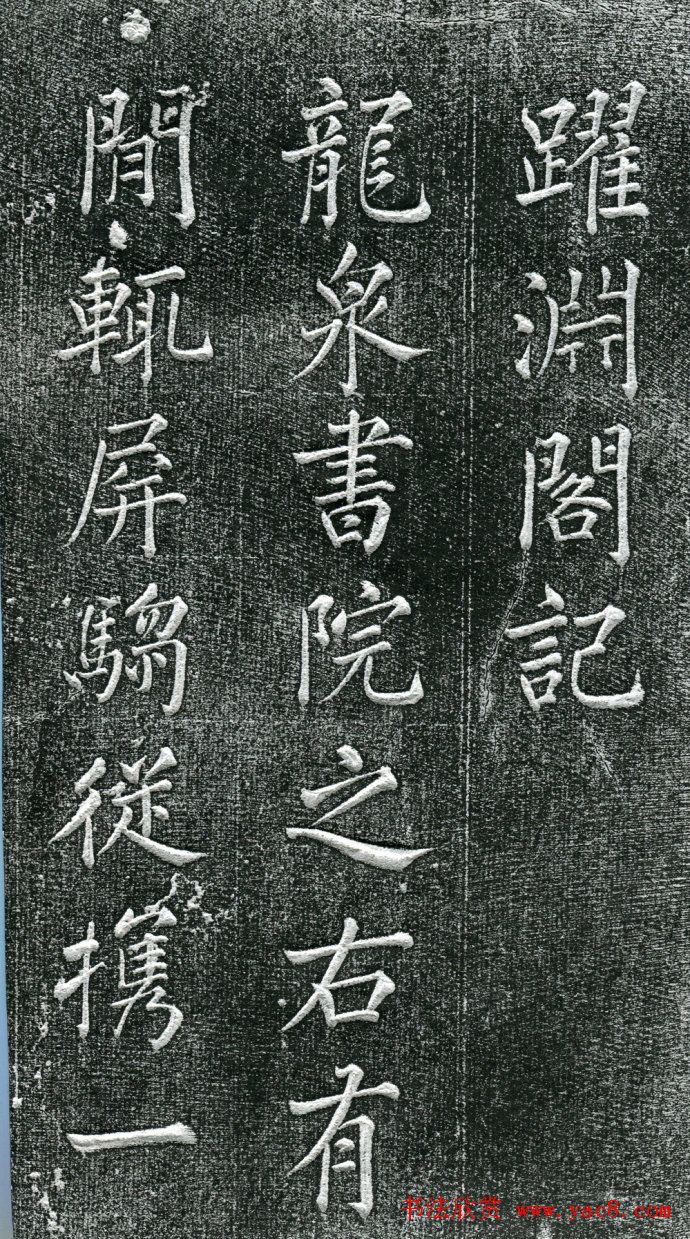 躍淵閣記
龍泉書院之右有
閒輒屏騶從攜一
书法欣赏 www.yac8.com